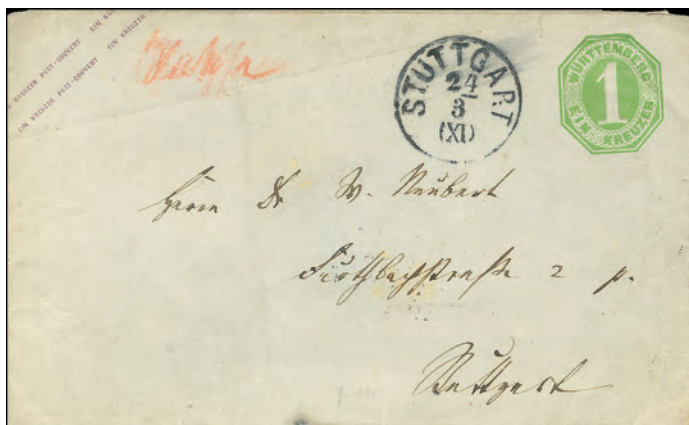 EIN KREUZER POST-COUVERT EIN KREUZER POST-COUVERT
EIN KREUZER POST-COUVERT EIN KREUZER
STUTTGART
24
3
(XI)
WÜRTTEMBERG
1
EIN KREUZER
Herrn Dr W. Neubert
2 p.
Stuttgart